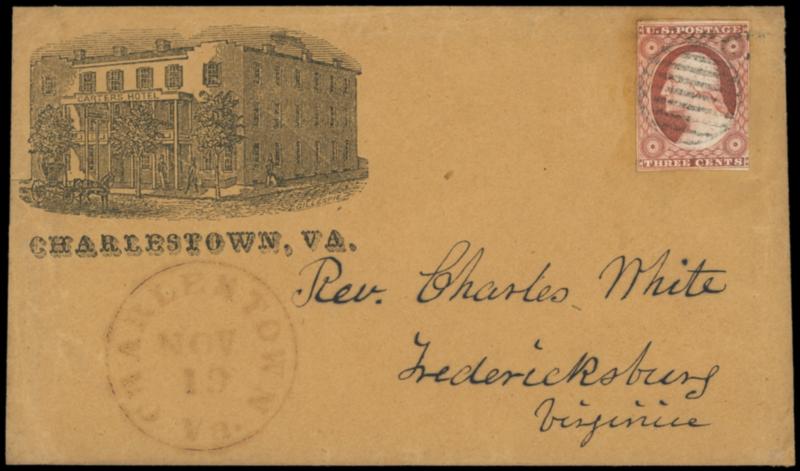 CARTERS HOTEL
CHARLESTOWN, VA.
U.S. POSTAGE
THREE CENTS
CHARLESTOWN
NOV
19
Va.
Rev. Charles White
Fredericksburg
Virginia